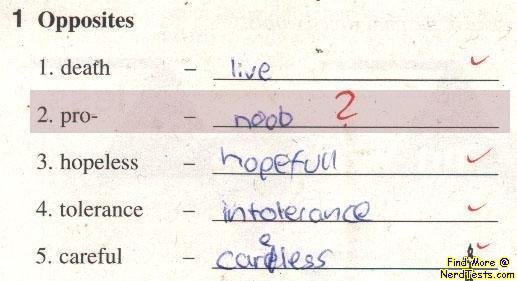 1 Opposites
1. death – live
2. pro- – noob ?
3. hopeless – hopefull
4. tolerance – intolerance
5. careful – careless
Find More @
NerdTests.com